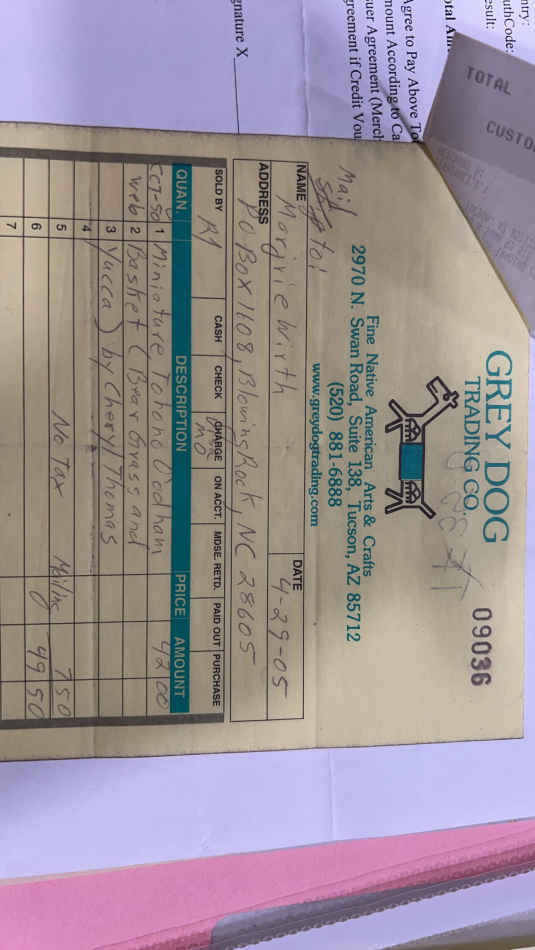 GREY DOG
TRADING CO.
09036
Fine Native American Arts & Crafts
2970 N. Swan Road, Suite 138, Tucson, AZ 85712
(520) 881-6888
www.greydogtrading.com
Mail
to:
DATE 4-29-05
NAME Marjrie Wirth
ADDRESS PO Box 1108, Blowing Rock, NC 28605
SOLD BY CASH CHECK CHARGE ON ACCT. MDSE. RETD. PAID OUT PURCHASE
R1 MO
QUAN. DESCRIPTION PRICE AMOUNT
1 Miniature Tohono O'odham 42 00
web 2 Basket (Bear Grass and
3 Yucca) by Cheryl Thomas
4
5 No Tax Mailing 7 50
6 49 50
7
TOTAL
CUSTO
ntry:
uthCode:
esult:
otal Am
Agree to Pay Above To
mount According to Ca
uer Agreement (Merch
greement if Credit Vou
gnature X